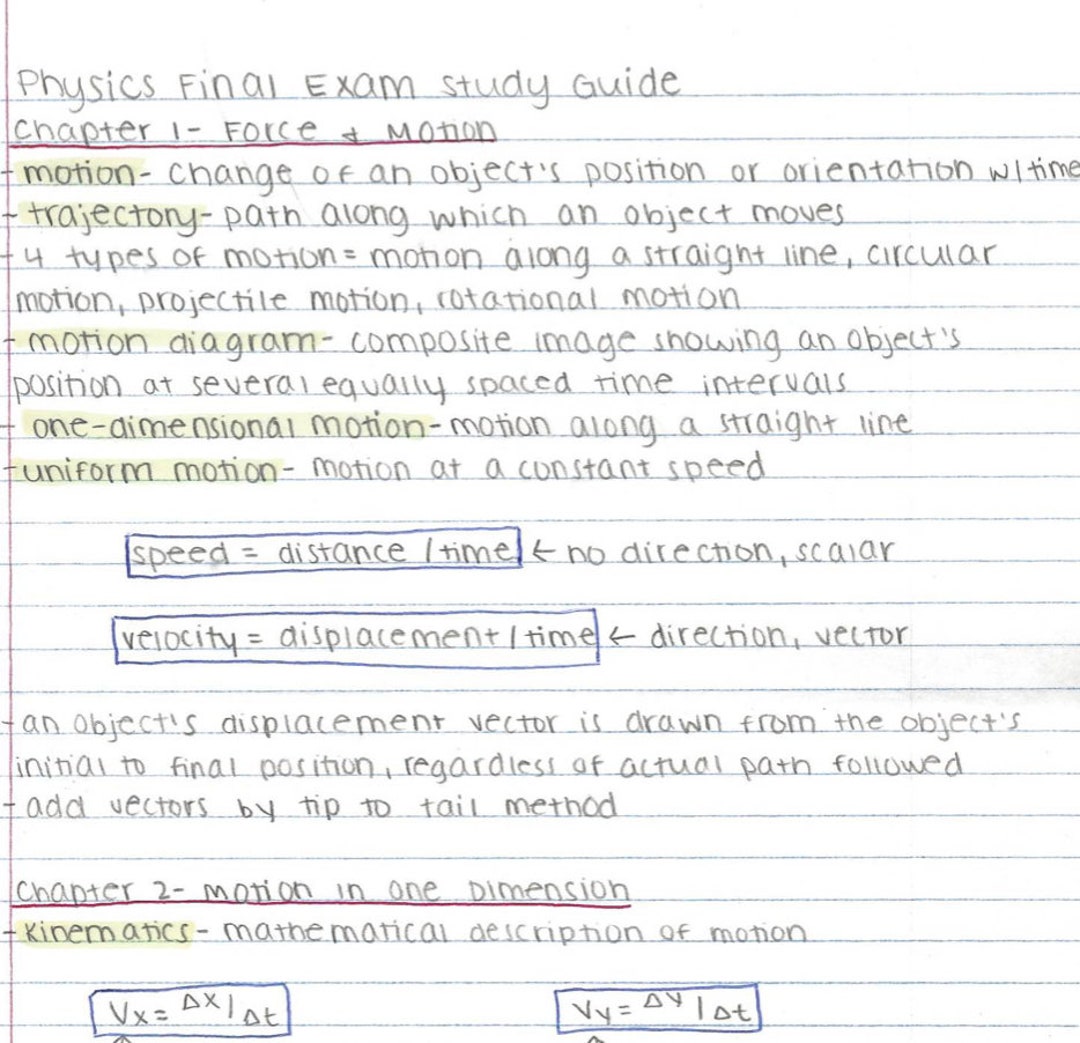 Physics Final Exam Study Guide
Chapter 1- Force & Motion
- motion- change of an object's position or orientation w/time
- trajectory- path along which an object moves
- 4 types of motion= motion along a straight line, circular
motion, projectile motion, rotational motion
- motion diagram- composite image showing an object's
position at several equally spaced time intervals
- one-dimensional motion- motion along a straight line
- uniform motion- motion at a constant speed
speed = distance / time ← no direction, scalar
velocity = displacement / time ← direction, vector
- an object's displacement vector is drawn from the object's
initial to final position, regardless of actual path followed
- add vectors by tip to tail method
Chapter 2- Motion in One Dimension
- Kinematics- mathematical description of motion
Vx = Δx/Δt Vy = Δy/Δt